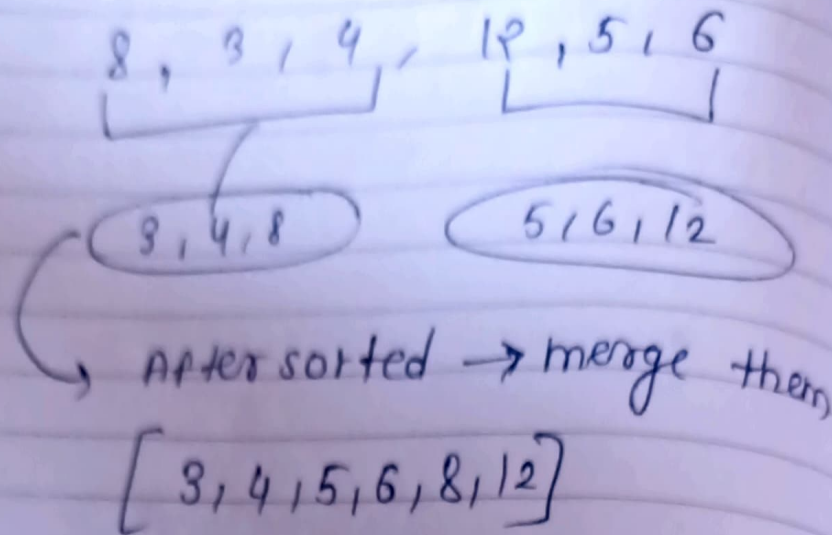 8, 3, 4, 12, 5, 6
3, 4, 8 5, 6, 12
After sorted → merge them
[3, 4, 5, 6, 8, 12]